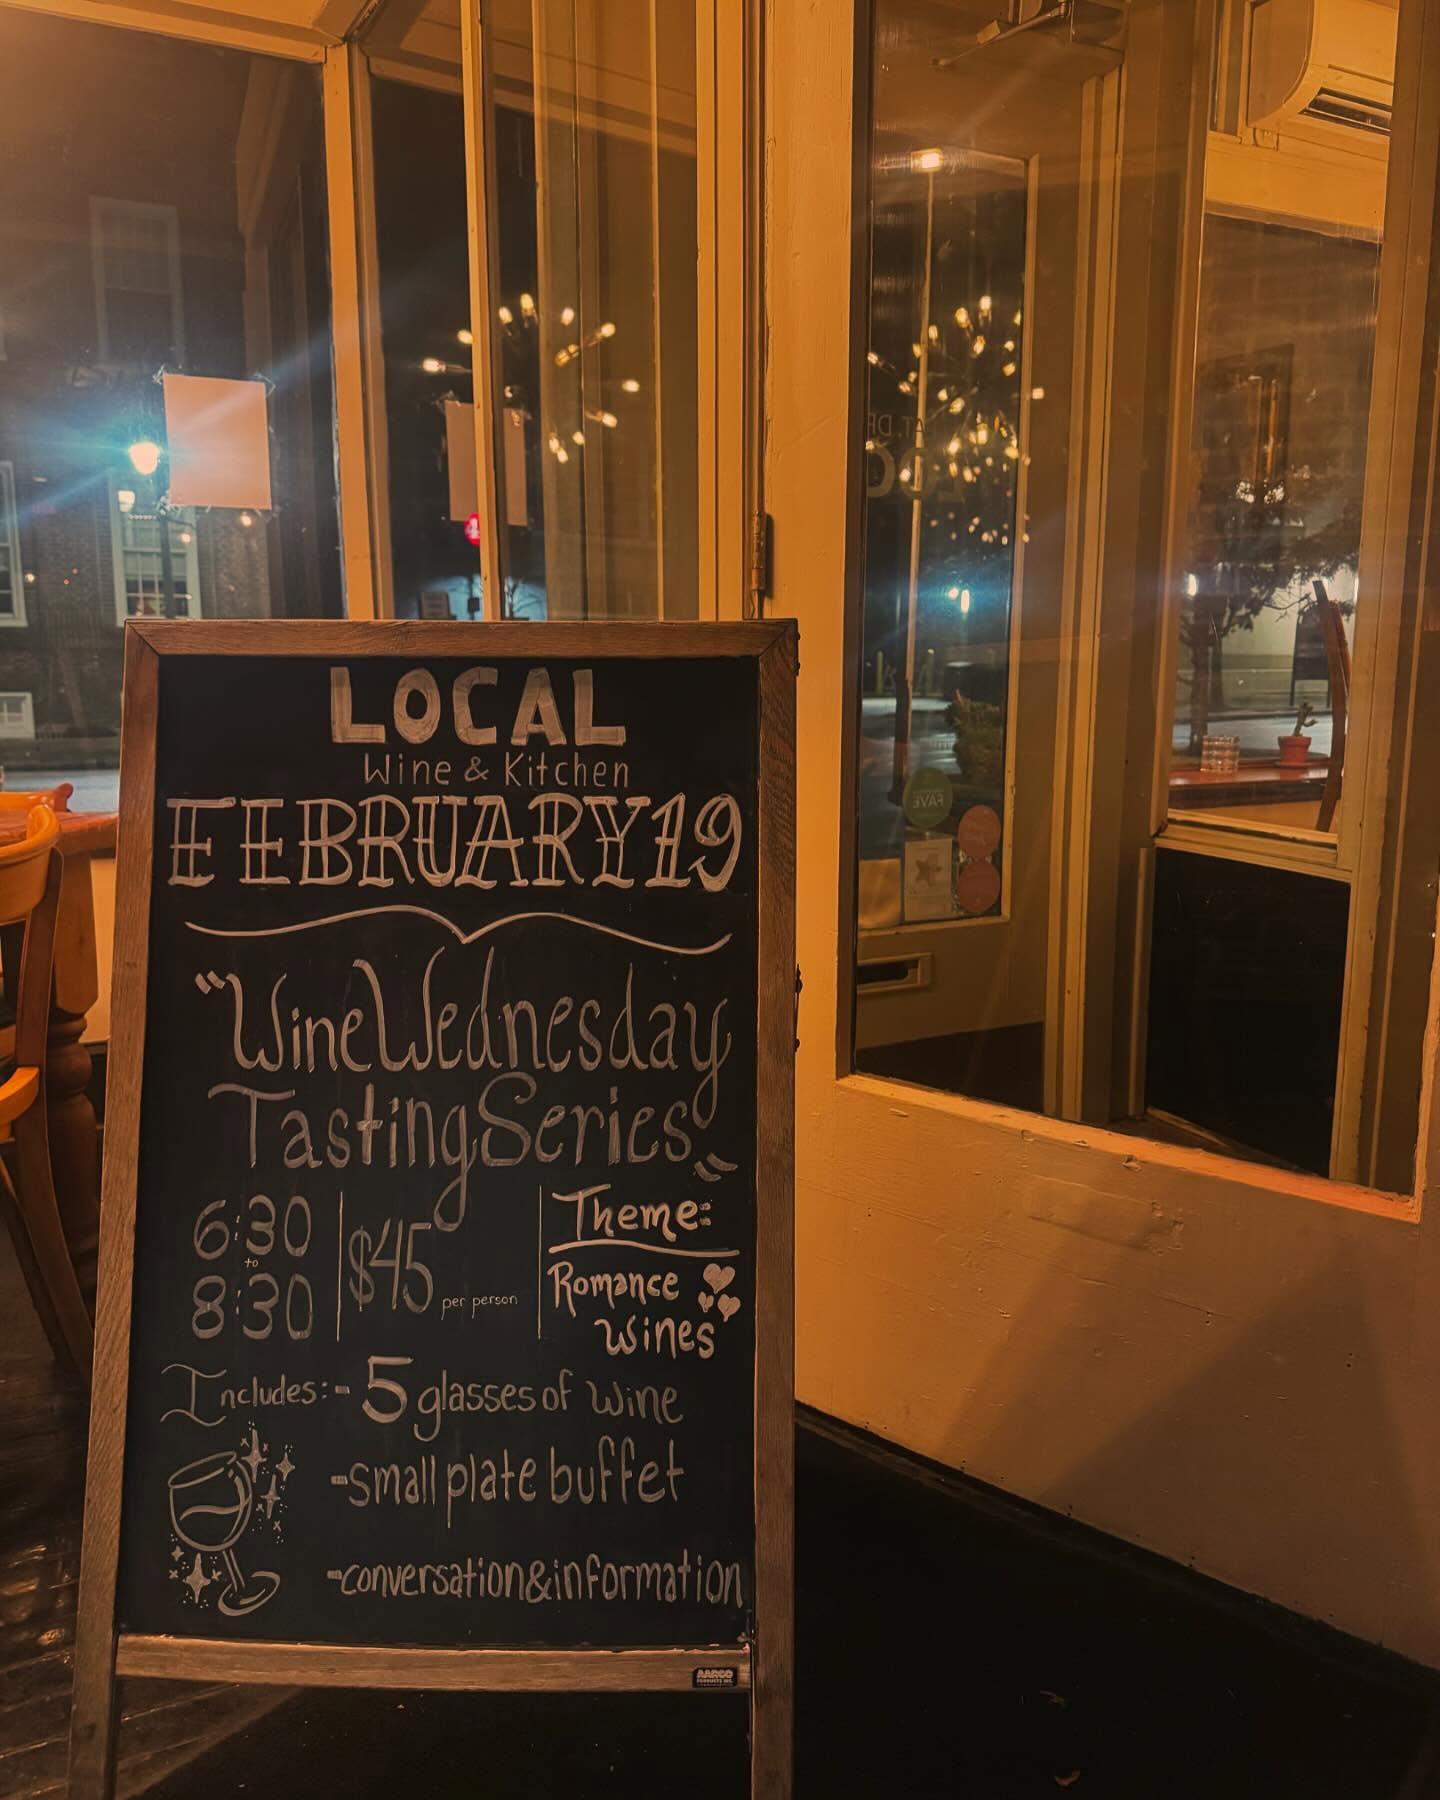 LOCAL
Wine & Kitchen
FEBRUARY 19
"Wine Wednesday
Tasting Series"
6:30
to
8:30
$45 per person
Theme:
Romance
Wines
Includes: - 5 glasses of wine
- small plate buffet
- conversation & information
AARCO
PRODUCTS INC.
FAVE